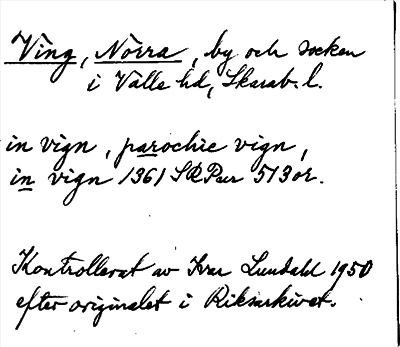 Ving, Norra, by och socken
i Valle hd, Skarab. l.
in vign, parochie vign,
in vign 1361 SRPur 513 or.
Kontrollerat av Ivar Lundahl 1950
efter originalet i Riksarkivet.